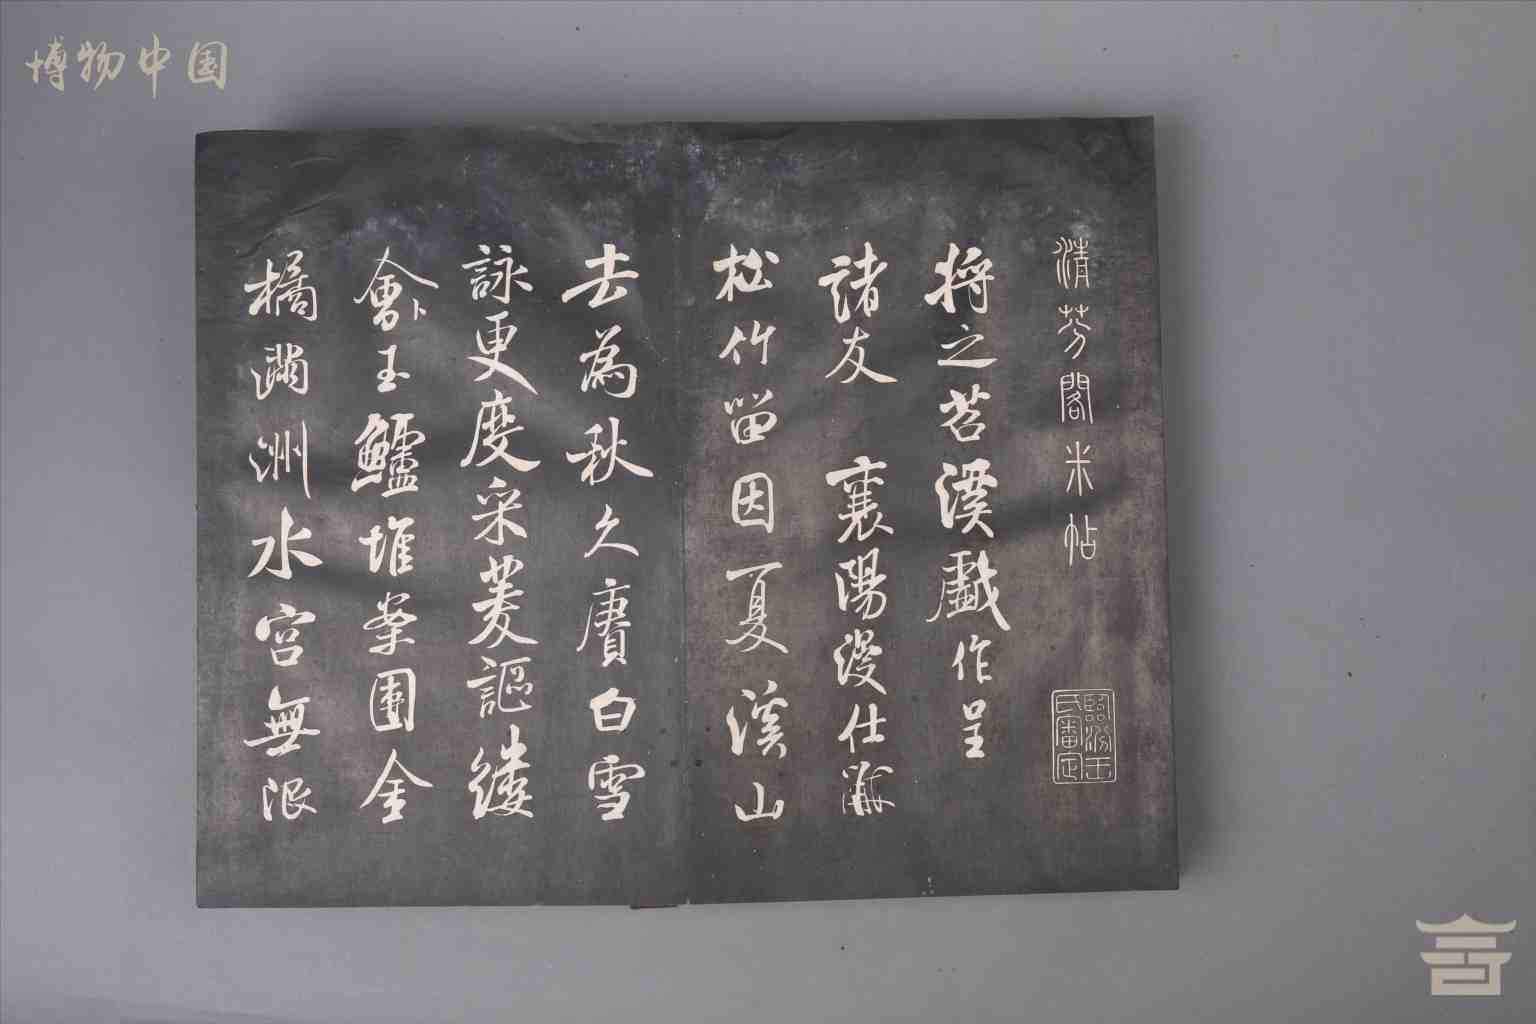 博物中国
清芳閣米帖
將之苕溪戲作呈
諸友 襄陽漫仕黻
松竹留因夏溪山
去為秋久賡白雪
詠更度采菱謳縷
鱠玉鱸堆案團金
橘滿洲水宮無限